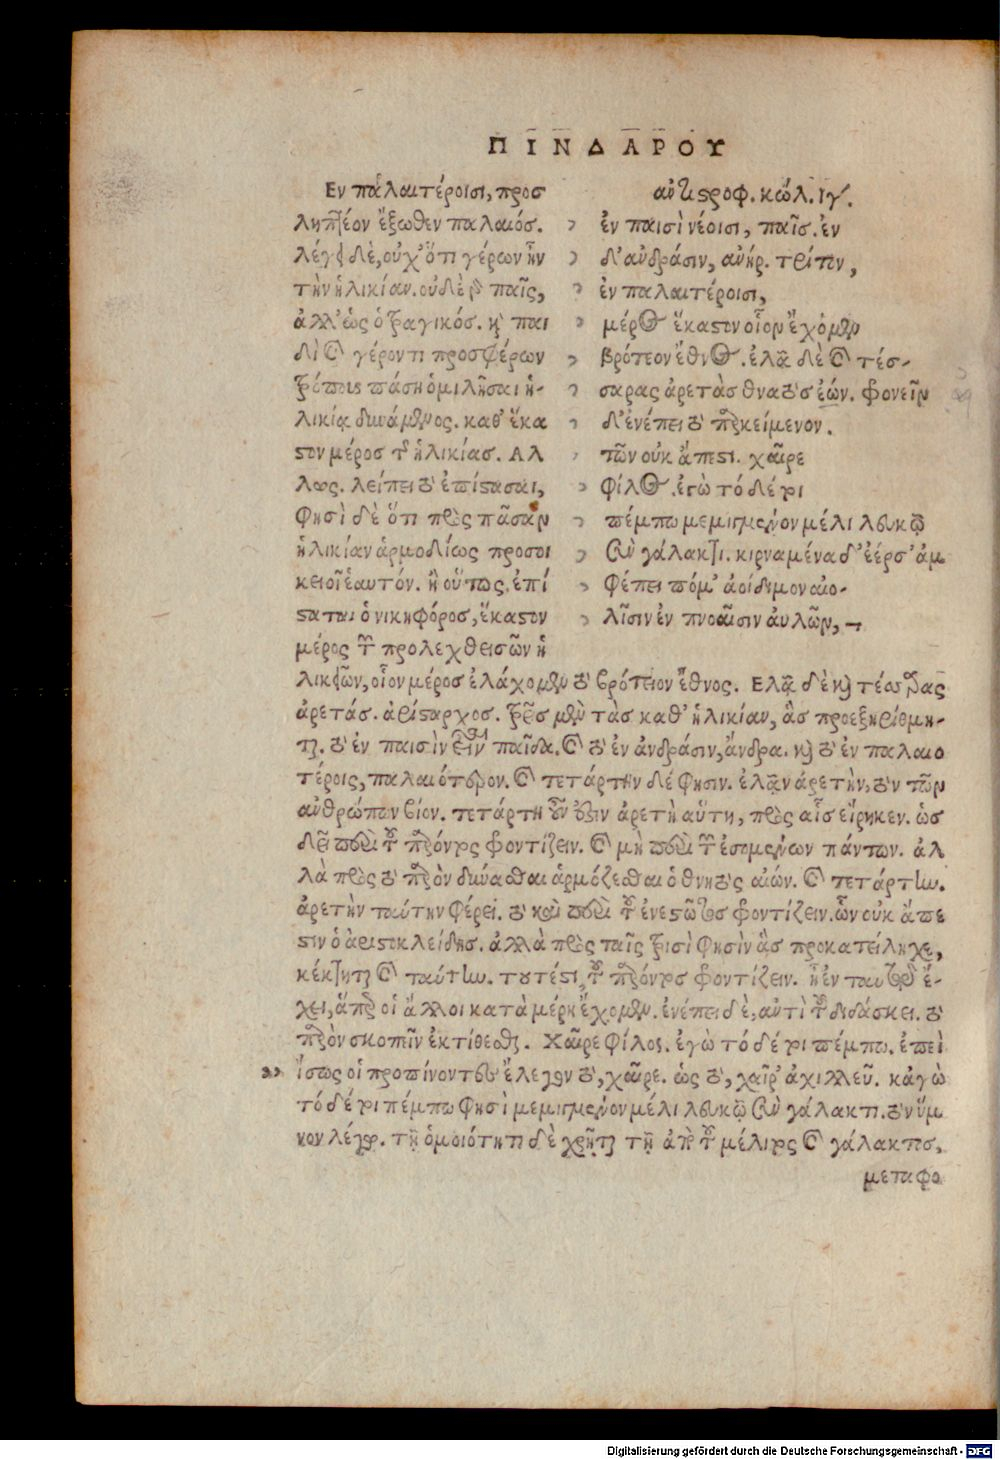 ΠΙΝΔΑΡΟΥ
Εν παλαιτέροισι, προσ
ληπτέον ἔξωθεν παλαιός.
λέγει δὲ, οὐχ' ὅτι γέρων ἦν
τὴν ἡλικίαν. οὐδὲ παῖς,
ἀλλ' ὡς ὁ τραγικός. καὶ παι
δὶ καὶ γέροντι προσφέρων
τρόπους πάσῃ ὁμιλῆσαι ἡ-
λικίᾳ δυνάμενος. καθ' ἕκα
στον μέρος τῆς ἡλικίας. Αλ
λως. λείπει τὸ ἐπίστασαι,
φησὶ δὲ ὅτι πρὸς πᾶσαν
ἡλικίαν ἁρμοδίως προσοι
κειοῖ ἑαυτόν. ἢ οὕτως, ἐπί
σταται ὁ νικηφόρος, ἕκαστον
μέρος τῶν προλεχθεισῶν ἡ
αντιστροφ. κώλ. ιγ'.
ἐν παισὶ νέοισι, παῖς. ἐν
δ' ἀνδράσιν, ἀνήρ. τρίτον,
ἐν παλαιτέροισι,
μέρος ἕκαστον οἷον ἔχομεν
βρότεον ἔθνος. ἐλᾷ δὲ καὶ τέσ-
σαρας ἀρετὰς θνατὸς ἐών. φρονεῖν
δ' ἐνέπει τὸ παρκείμενον.
τῶν οὐκ ἄπεστι. χαῖρε
φίλος. ἐγὼ τό δέ τοι
πέμπω μεμιγμένον μέλι λευκῷ
σὺν γάλακτι. κιρναμένα δ' ἐέρσ' ἀμ
φέπει πόμ' ἀοίδιμον αἰο-
λῇσιν ἐν πνοαῖσιν αὐλῶν,
λικιῶν, οἷον μέρος ἐλάχομεν τὸ βρότειον ἔθνος. Ελᾷ δὲ καὶ τέσσαρας
ἀρετάς. ἀρίσταρχος. τρεῖς μὲν τὰς καθ' ἡλικίαν, ἃς προεξηρίθμη-
ται. τὸ ἐν παισὶν εἶναι παῖδα. καὶ τὸ ἐν ἀνδράσιν, ἄνδρα. καὶ τὸ ἐν παλαιο
τέροις, παλαιότερον. καὶ τετάρτην δέ φησιν. ἐλᾷν ἀρετὴν, τὸν τῶν
ἀνθρώπων βίον. τετάρτη οὖν ἐστὶν ἀρετὴ αὕτη, πρὸς αἷς εἴρηκεν. ὡς
δεῖ περὶ τοῦ παρόντος φροντίζειν. καὶ μὴ περὶ τῶν ἐσομένων πάντων. ἀλ
λὰ πρὸς τὸ παρὸν δύνασθαι ἁρμόζεσθαι ὁ θνητὸς αἰών. καὶ τετάρτην.
ἀρετὴν ταύτην φέρει. τὸ καὶ περὶ τοῦ ἐνεστῶτος φροντίζειν. ὧν οὐκ ἄπε
στιν ὁ ἀριστοκλείδης. ἀλλὰ πρὸς ταῖς τρισὶ φησὶν ἃς προκατείληχε,
κέκτηται καὶ ταύτην. τουτέστι, τοῦ παρόντος φροντίζειν. ἢ ἐν ταυτῷ ἔ-
χει, ἅπερ οἱ ἄλλοι κατὰ μέρη ἔχομεν. ἐνέπει δὲ, αὐτὶ τοῦ διδάσκει. τὸ
παρὸν σκοπεῖν ἐκτίθεσθαι. Χαῖρε φίλος. ἐγὼ τό δέ τοι πέμπω. ἐπεὶ
ἴσως οἱ προπίνοντες ἔλεγον τὸ, χαῖρε. ὡς τὸ, χαῖρ' ἀχιλλεῦ. κἀγὼ
τό δέ τοι πέμπω φησὶ μεμιγμένον μέλι λευκῷ σὺν γάλακτι. τὸν ὕμ
νον λέγων. τῇ ὁμοιότητι δὲ χρῆται τῇ ἀπὸ τοῦ μέλιτος καὶ γάλακτος,
μεταφο
Digitalisierung gefördert durch die Deutsche Forschungsgemeinschaft - DFG